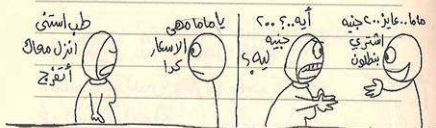 ماما.. عايز ٢٠٠ جنيه
اشتري
بنطلون
أيه..؟ ٢٠٠
جنيه
ليه؟
يا ماما مهي
الاسعار
كدا
طب استنى
انزل معاك
أتفرج